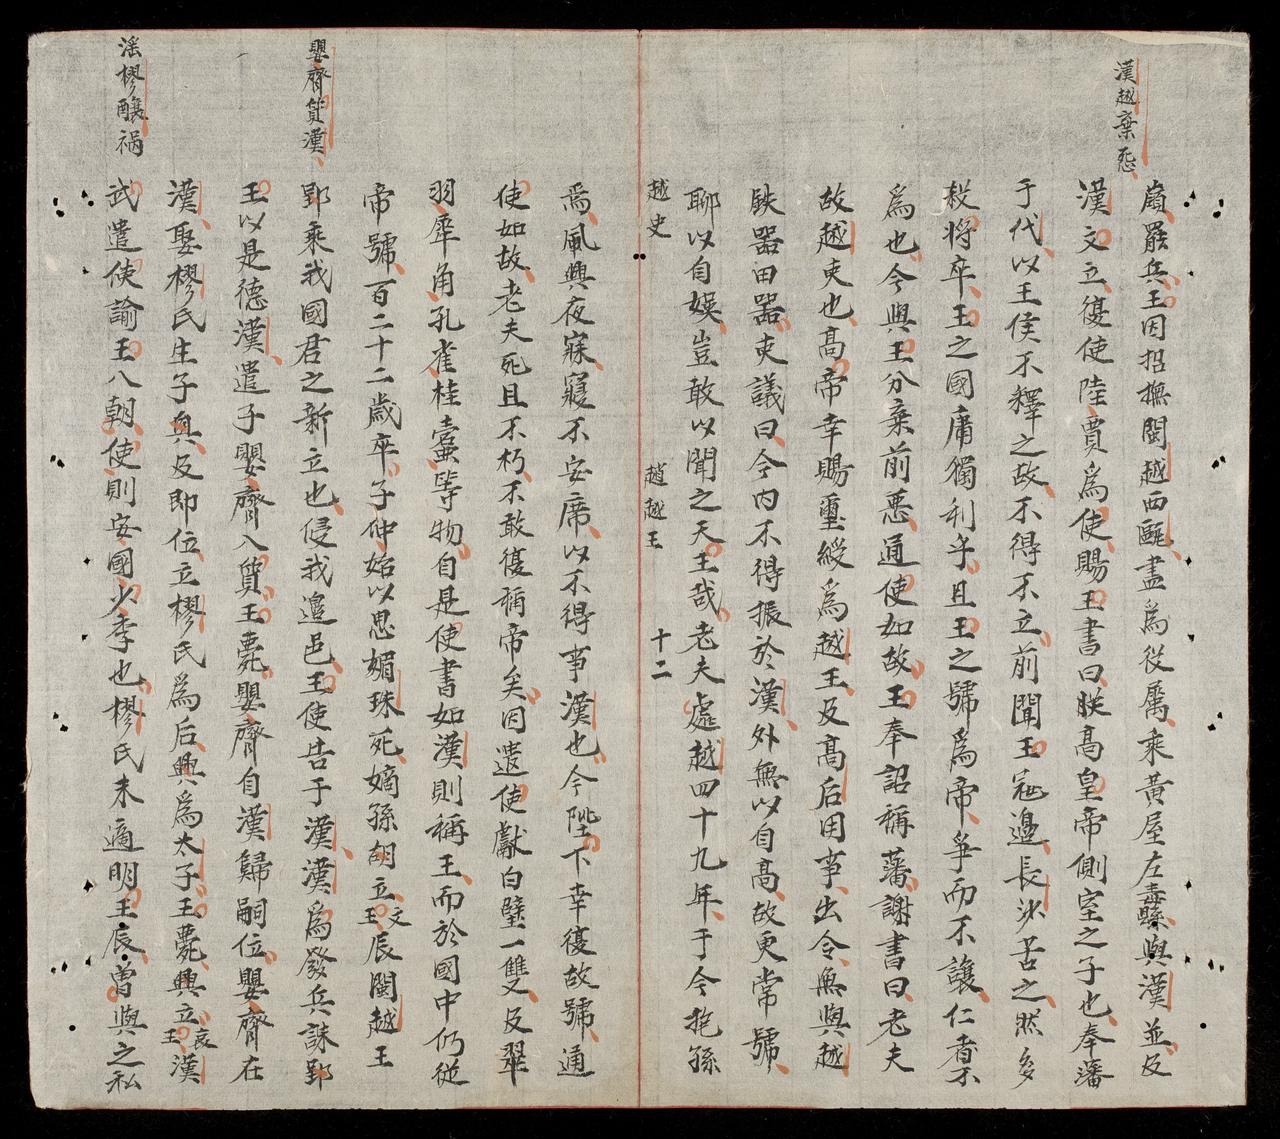 漢越棄惡
嶺罷兵王因招撫閩越西甌盡為從屬乘黃屋左纛與漢並及
漢文立復使陸賈為使賜王書曰朕高皇帝側室之子也奉藩
于代以王侯不釋之故不得不立前聞王寇邊長沙苦之然多
殺將卒王之國庸獨利乎且王之號為帝爭而不讓仁者不
為也今與王分棄前惡通使如故王奉詔稱藩謝書曰老夫
故越吏也高帝幸賜璽綬為越王及高后用事出令無與越
鉄器田器吏議曰今內不得振於漢外無以自高故更常號
聊以自娛豈敢以聞之天王哉老夫處越四十九年于今抱孫
越史 趙越王 十二
焉風興夜寐寢不安席以不得事漢也今陛下幸復故號通
使如故老夫死且不朽不敢復稱帝矣因遣使獻白璧一雙及翠
羽犀角孔雀桂蠹等物自是使書如漢則稱王而於國中仍從
帝號百二十二歲卒子仲始以思媚珠死嫡孫胡立文王辰閩越王
嬰齊質漢
郢乘我國君之新立也侵我邊邑王使告于漢漢為發兵誅郢
王以是德漢遣子嬰齊入質王薨嬰齊自漢歸嗣位嬰齊在
漢娶樛氏生子興及即位立樛氏為后興為太子王薨興立哀王漢
淫樛釀禍
武遣使諭王入朝使則安國少季也樛氏未適明王辰曾與之私